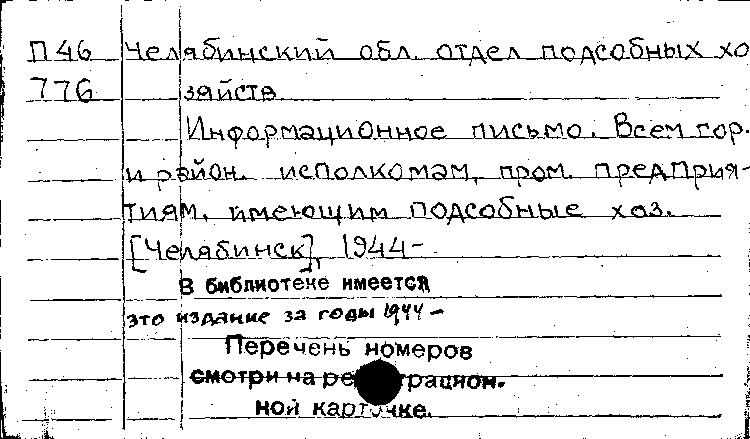 П46 Челябинский обл. отдел подсобных хо
776 зяйств
Информационное письмо. Всем гор.
и район. исполкомам, пром. предприя-
тиям, имеющим подсобные хоз.
[Челябинск], 1944-
В библиотеке имеется
это издание за годы 1944-
Перечень номеров
смотри на регистрацион.
ной карточке.